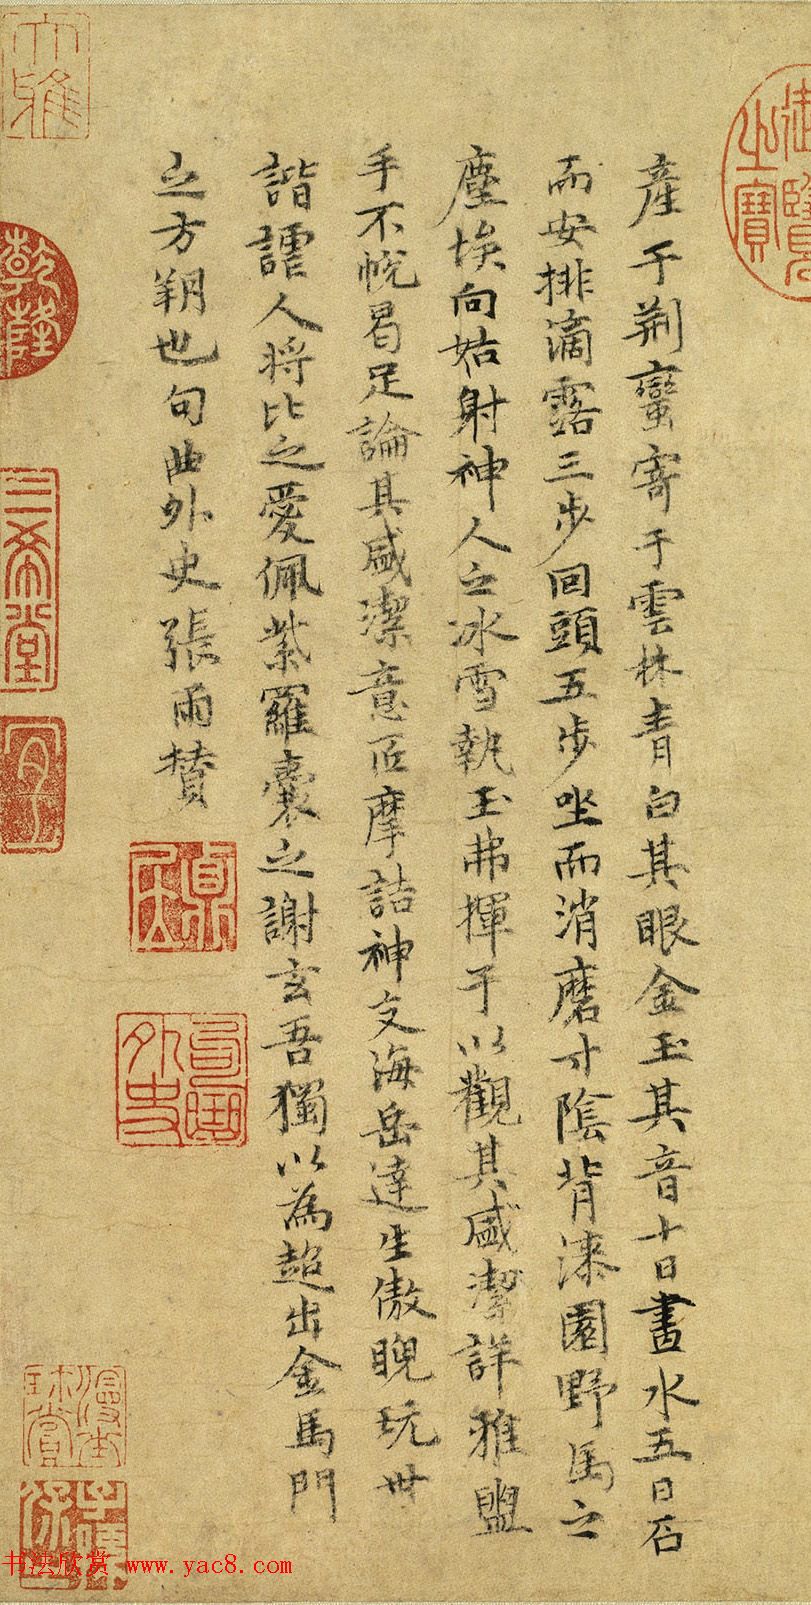 產于荊蠻寄于雲林青白其眼金玉其音十日畫水五日石
而安排滴露三步回頭五步坐而消磨寸陰背漆園野馬之
塵埃向姑射神人之冰雪執玉拂揮于以觀其盛潔詳雅盥
手不帨曷足論其盛潔意匠摩詰神交海岳達生傲睨玩世
諧謔人將比之愛佩紫羅囊之謝玄吾獨以為超出金馬門
之方朔也句曲外史張雨贊
御覽之寶
大雅
乾隆
三希堂
宜子
句曲外史
書法欣賞 www.yac8.com